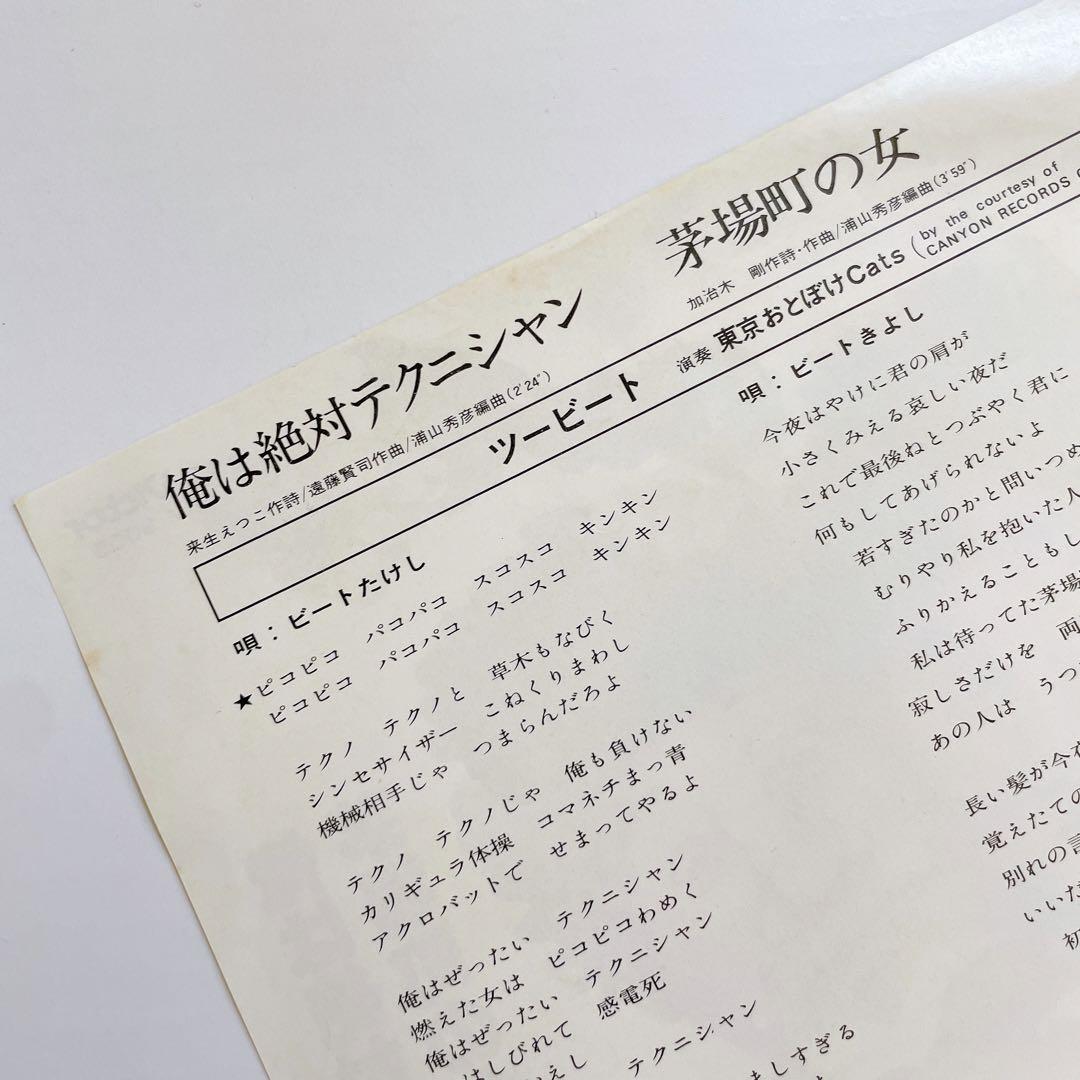 俺は絶対テクニシャン
来生えつこ作詩/遠藤賢司作曲/浦山秀彦編曲(2′24″)
茅場町の女
加治木 剛作詩・作曲/浦山秀彦編曲(3′59″)
ツービート
演奏 東京おとぼけCats (by the courtesy of
CANYON RECORDS
唄:ビートたけし
★ピコピコ パコパコ スコスコ キンキン
ピコピコ パコパコ スコスコ キンキン
テクノ テクノと 草木もなびく
シンセサイザー こねくりまわし
機械相手じゃ つまらんだろよ
テクノ テクノじゃ 俺も負けない
カリギュラ体操 コマネチまっ青
アクロバットで せまってやるよ
俺はぜったい テクニシャン
燃えた女は ピコピコわめく
俺はぜったい テクニシャン
はしびれて 感電死
えし テクニシャン
ましすぎる
唄:ビートきよし
今夜はやけに君の肩が
小さくみえる哀しい夜だ
これで最後ねとつぶやく君に
何もしてあげられないよ
若すぎたのかと問いつめ
むりやり私を抱いた人
ふりかえることもし
私は待ってた茅場
寂しさだけを 両
あの人は うつ
長い髪が今夜
覚えたての
別れの言
いいだ
初